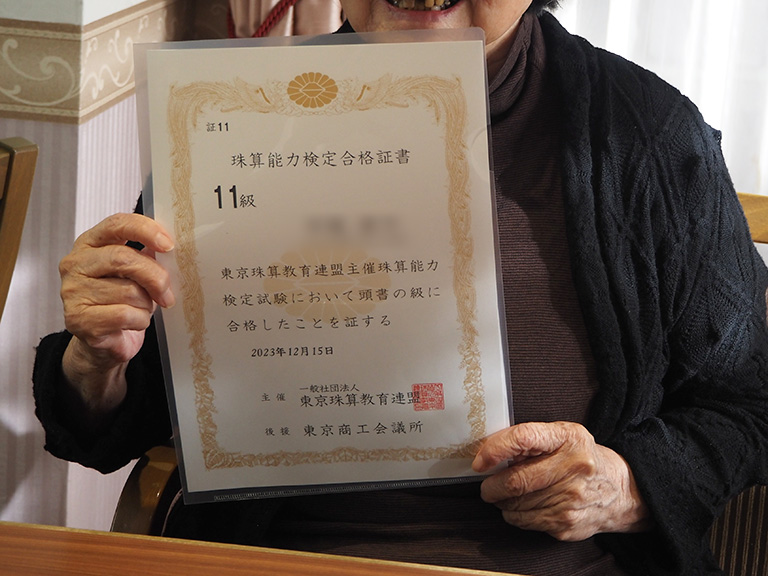 証11
珠算能力検定合格証書
11級
東京珠算教育連盟主催珠算能力
検定試験において頭書の級に
合格したことを証する
2023年12月15日
一般社団法人
主催 東京珠算教育連盟
後援 東京商工会議所